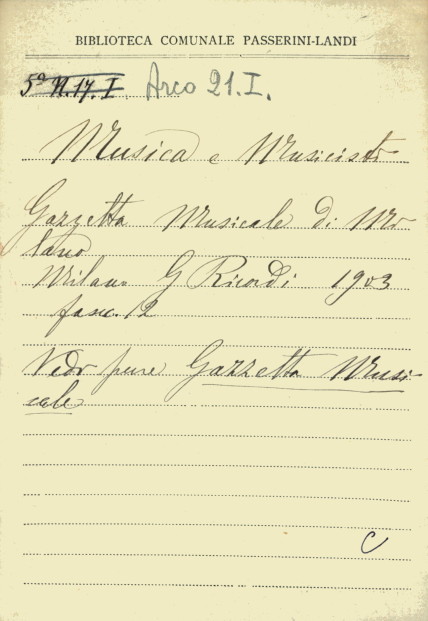 BIBLIOTECA COMUNALE PASSERINI-LANDI
5ª N.17.I. Arco 21.I.
Musica e Musicisti
Gazzetta Musicale di Mi
lano
Milano G Ricordi 1903
fasc. 12
Vedi pure Gazzetta Musi
cale
C